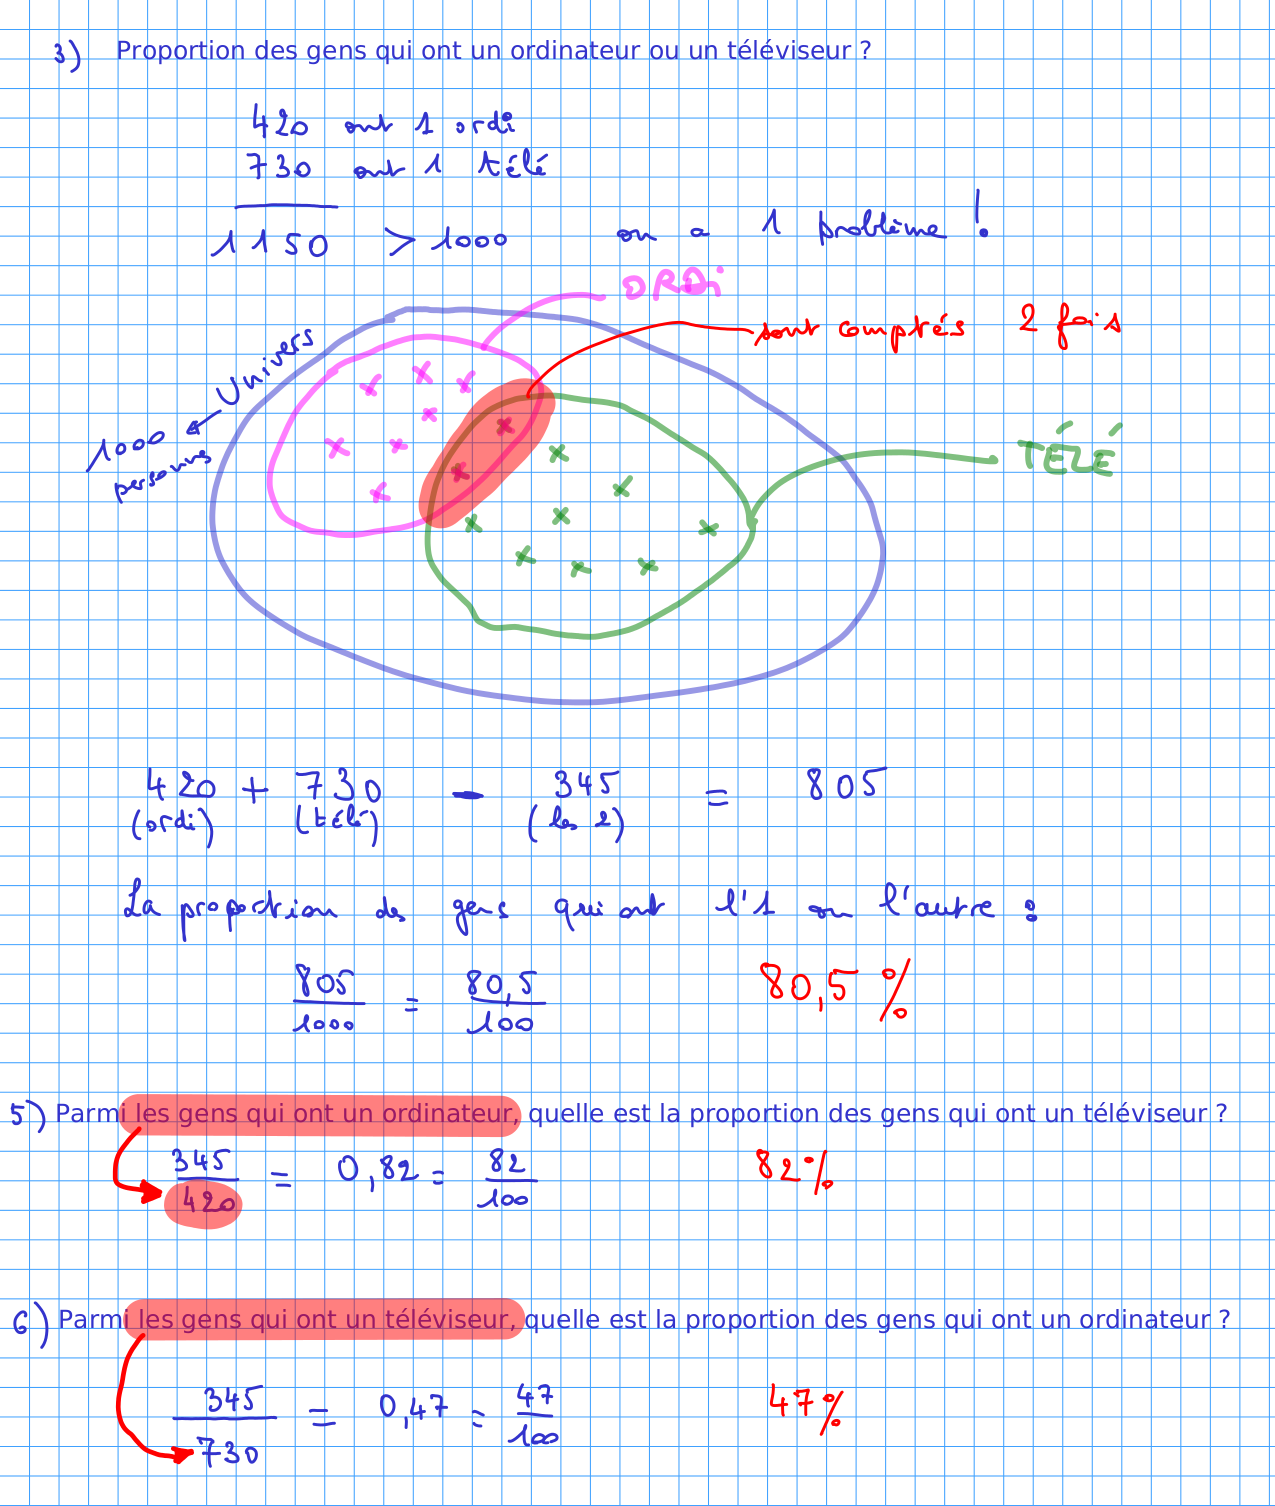 3) Proportion des gens qui ont un ordinateur ou un téléviseur ?
420 ont 1 ordi
730 ont 1 télé
1150 > 1000 on a 1 problème !
ORDi
sont comptés 2 fois
Univers
1000
personnes
TÉLÉ
420 + 730 - 345 = 805
(ordi) (télé) (les 2)
La proportion des gens qui ont l'1 ou l'autre :
805/1000 = 80,5/100 80,5 %
5) Parmi les gens qui ont un ordinateur, quelle est la proportion des gens qui ont un téléviseur ?
345/420 = 0,82 = 82/100 82%
6) Parmi les gens qui ont un téléviseur, quelle est la proportion des gens qui ont un ordinateur ?
345/730 = 0,47 = 47/100 47%